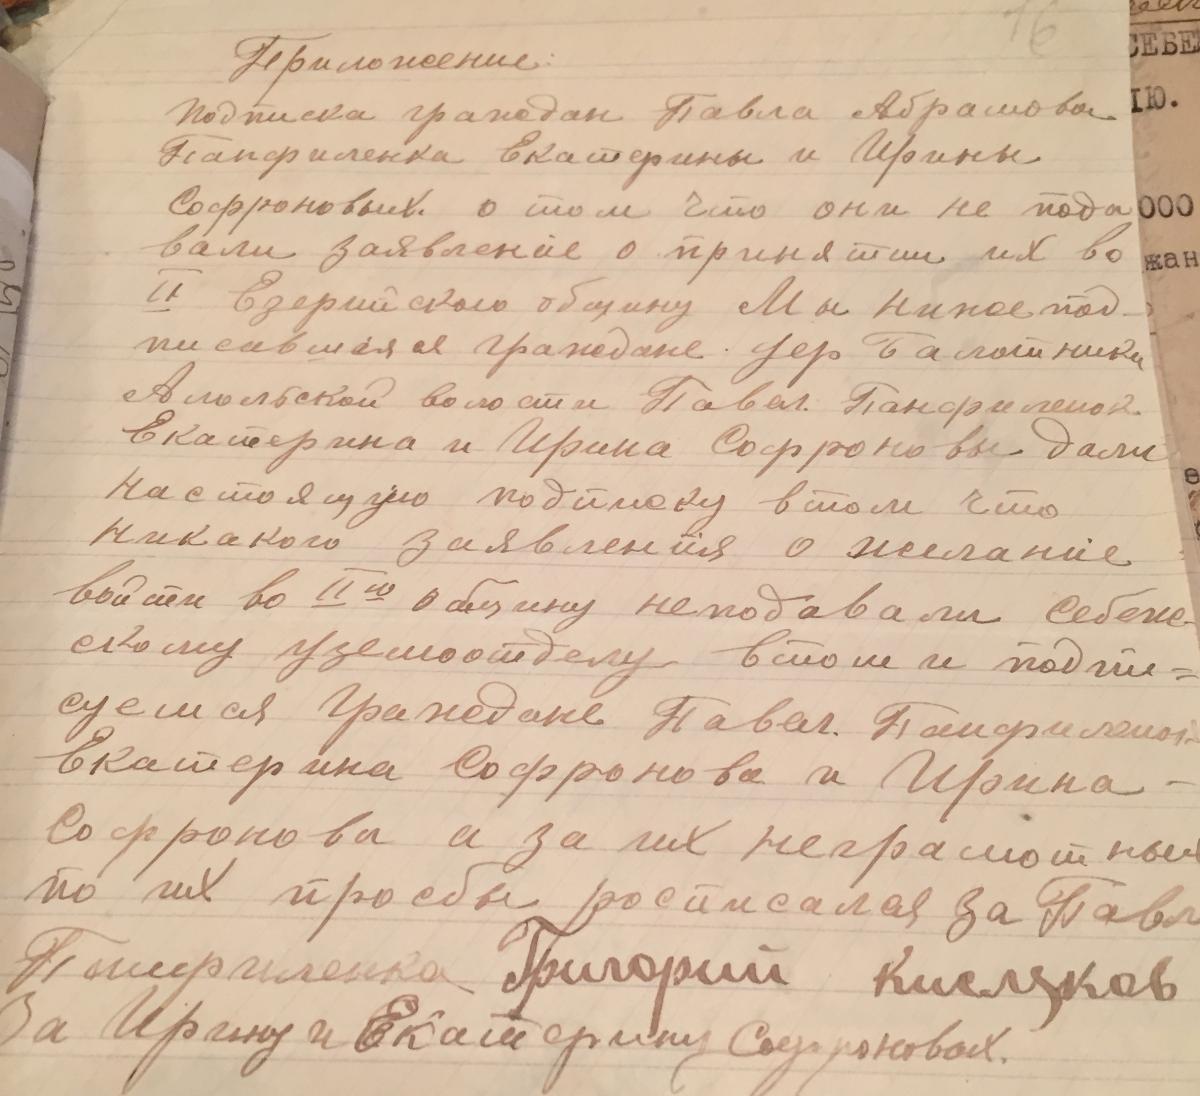 16
Приложение:
подписка граждан Павла Абрамова
Панфиленка Екатерины и Ирины
Софроновых. о том что они не пода
вали заявление о принятии их во
II Езерийского общину Мы ниже под-
писавшияся граждане дер Балотники
Алольской волости Павел. Панфиленок.
Екатерина и Ирина Софроновы дали
настоящую подписку втом что
никакого заявления о желание
войти во II ю общину неподавали Себеж-
скому уземоотделу втом и подпи=
суемся Граждане Павел. Панфиленок
Екатерина Софронова и Ирина -
Софронова а за их неграмотных
по их просбы росписался за Павл
Панфиленка Григорий Кисляков
За Ирину и Екатерину Софроновых.
СЕБЕЖ
Ю.
000
жан